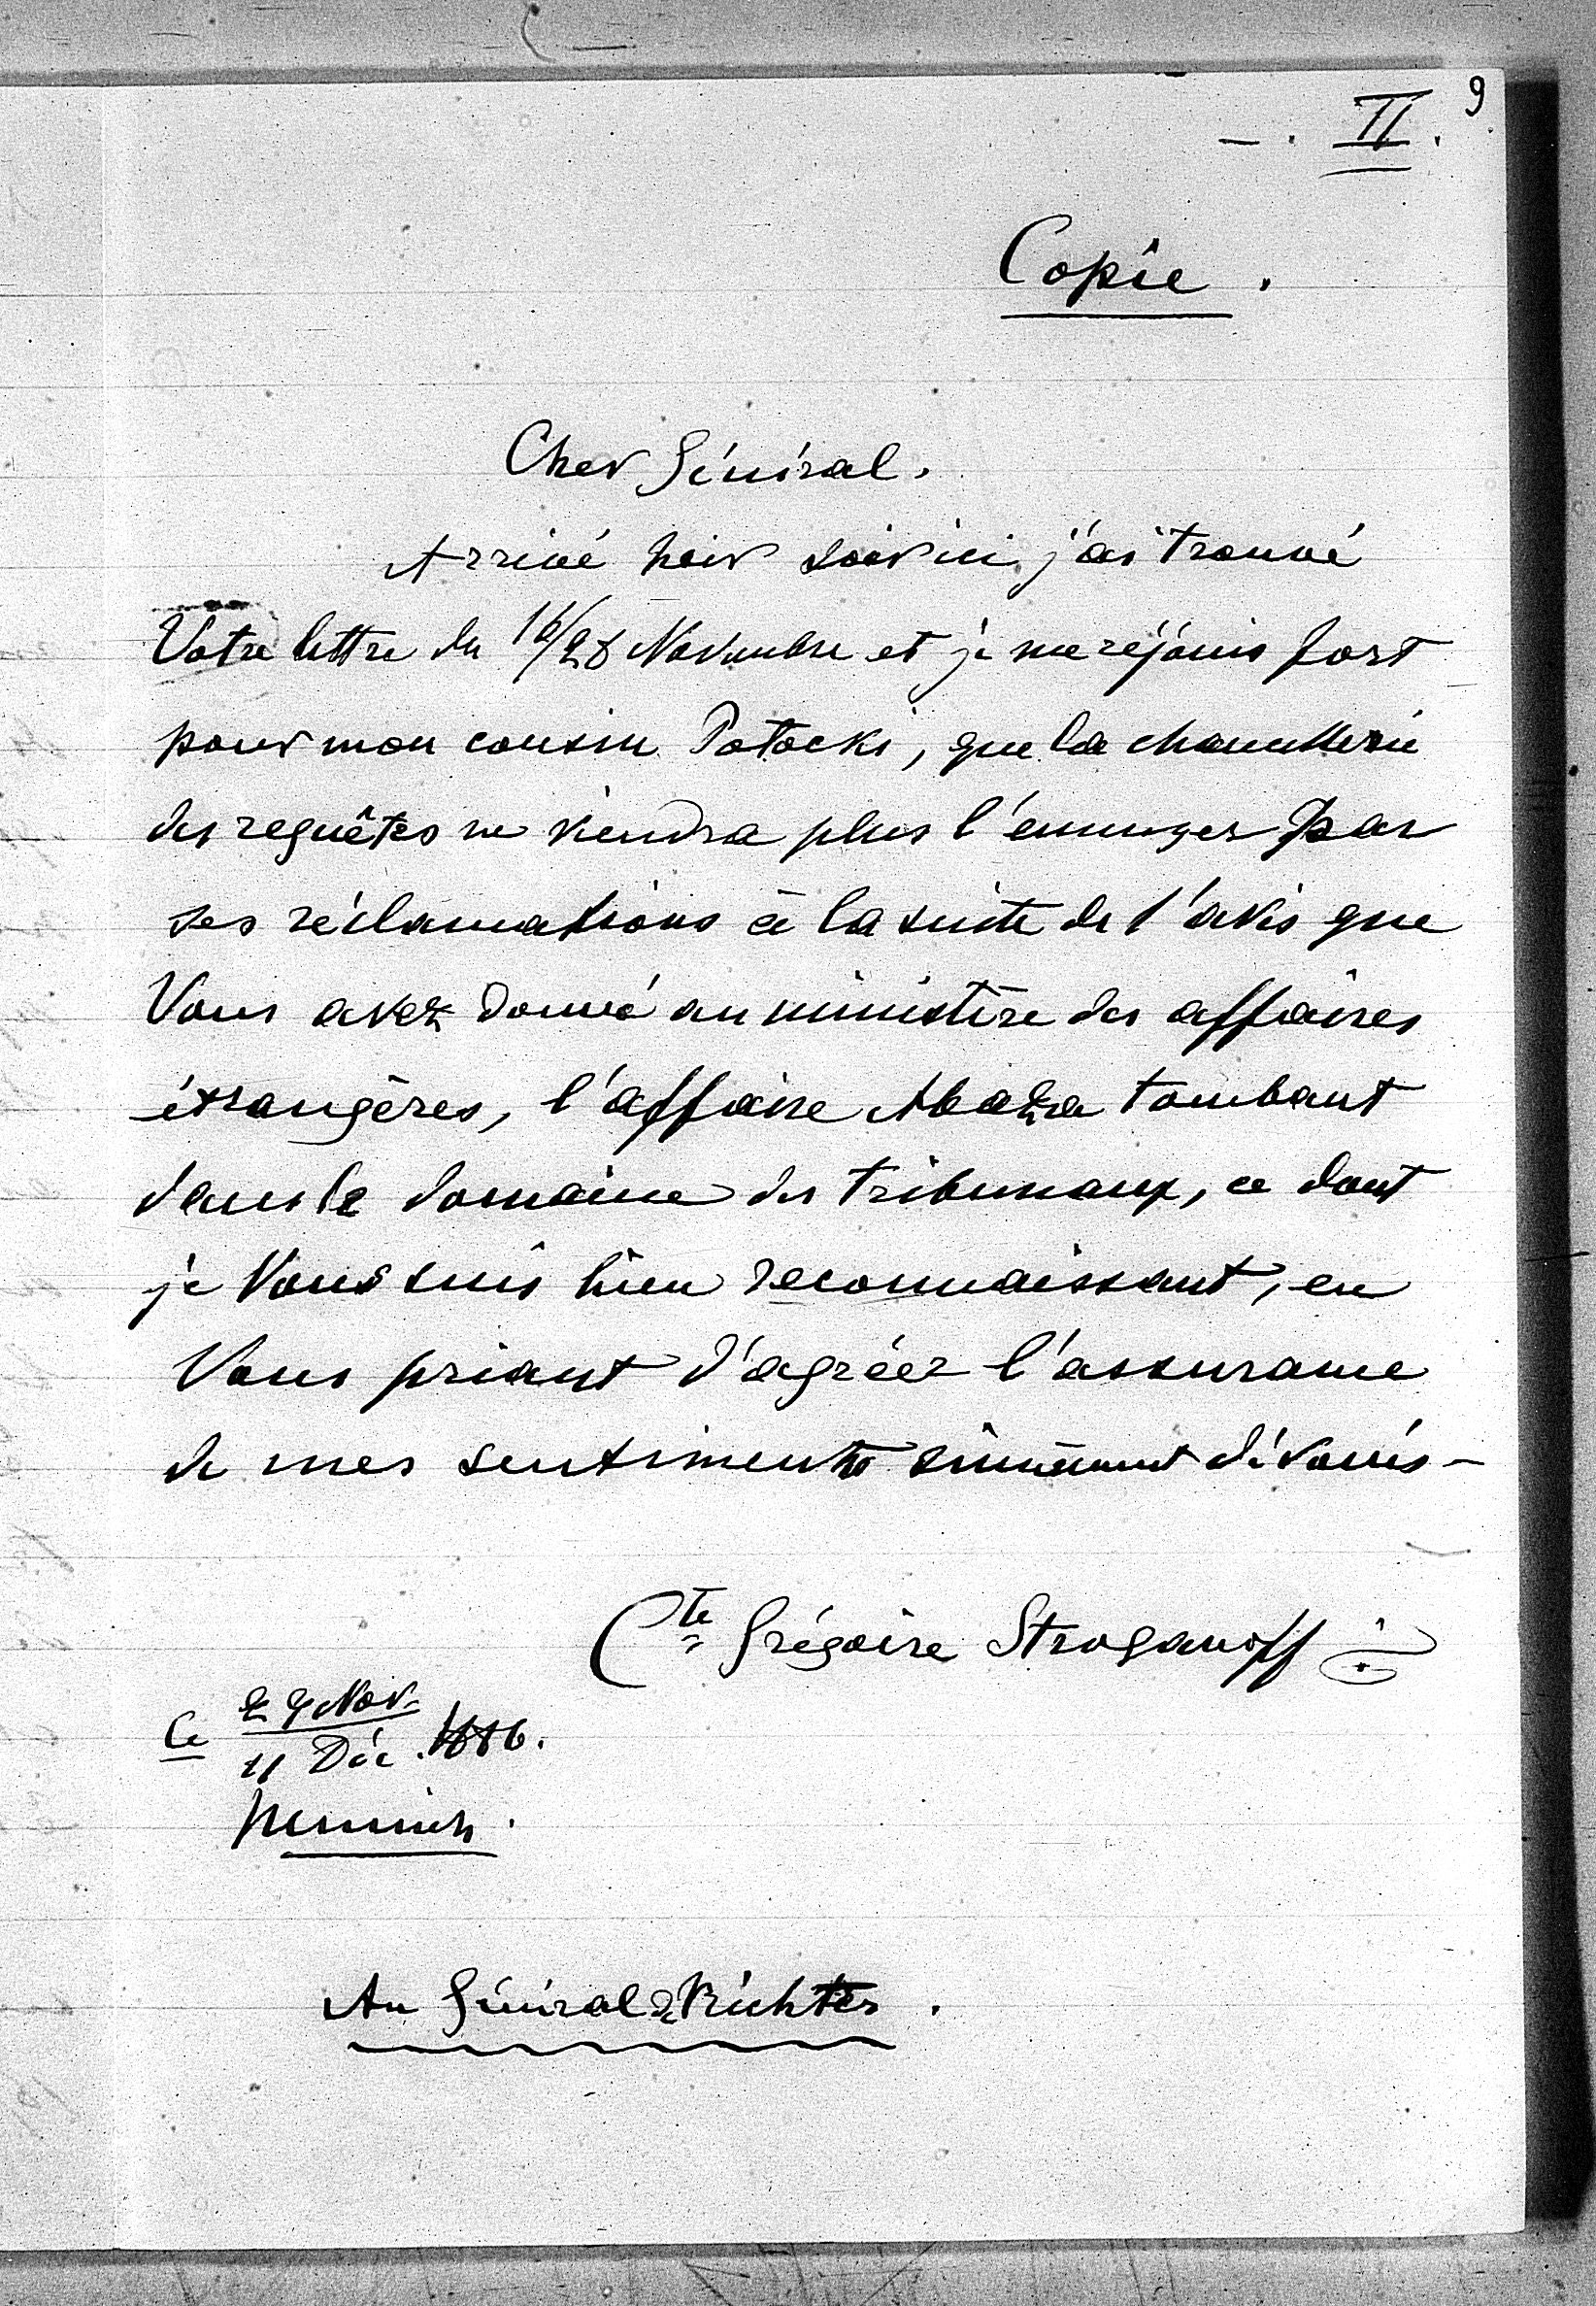 9
II.
Copie.
Cher Général,
Arrivé hier soir ici, j'ai trouvé
Votre lettre du 16/28 Novembre et je me réjouis fort
pour mon cousin Potocki, que la chancellerie
des requêtes ne viendra plus l'ennuyer par
ses réclamations à la suite de l'avis que
Vous avez donné au ministère des affaires
étrangères, l'affaire Abaza tombant
dans le domaine des tribunaux, ce dont
je Vous suis bien reconnaissant, en
Vous priant d'agréer l'assurance
de mes sentiments sincèrement dévoués –
Cte Grégoire Stroganoff
Ce 29 Nov. / 11 Déc. 1886.
Au Général de Richter.